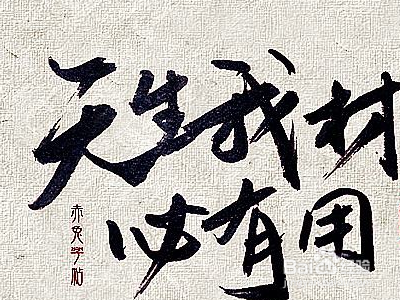 天生我材
必有用
赤兔字帖